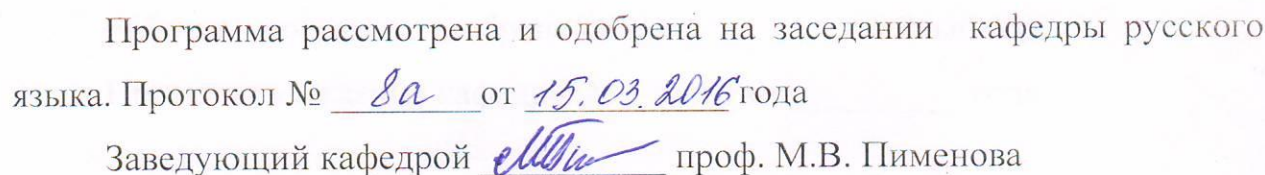 Программа рассмотрена и одобрена на заседании кафедры русского
языка. Протокол № 8а от 15.03.2016 года
Заведующий кафедрой проф. М.В. Пименова